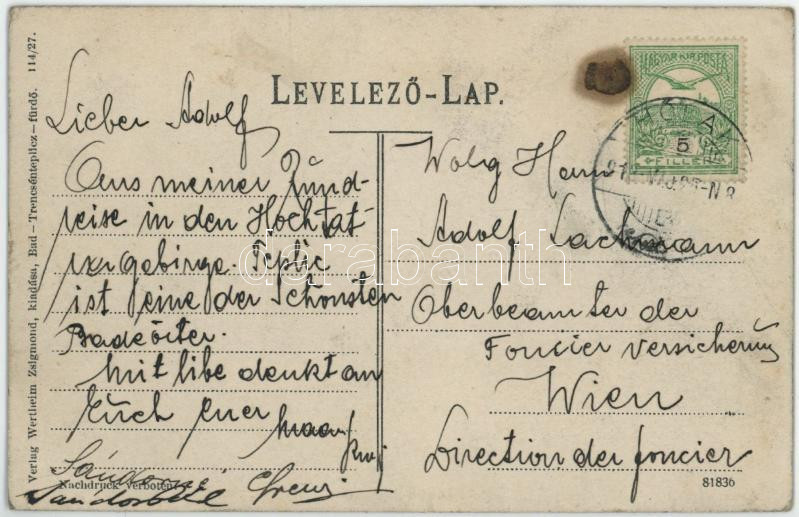 Verlag Wertheim Zsigmond, kiadása, Bad-Trencsénteplicz-fürdő. 114/27.
LEVELEZŐ-LAP.
MAGYAR KIR. POSTA
5
FILLÉR
Lieber Adolf
Aus meiner Rund-
reise in den Hochtat-
ragebirge. Teplic
ist eine der Schönsten
Badeörter.
mit libe denkt an
Euch Euer
Sándor
Nachdruck verboten
Wolg Herrn
Adolf Lachmann
Oberbeamter der
Foncier versicherung
Wien
Direction der foncier
81836
darabanth